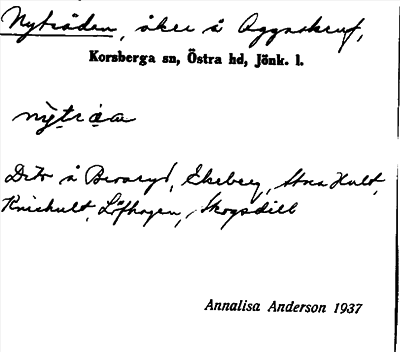 Nyträdan, åker å Aggaskruv,
Korsberga sn, Östra hd, Jönk. l.
nỳtráa
Dito å Broaryd, Ekeberg, Stora Hult,
Knickult, Löfhagen, Skogsdill
Annalisa Anderson 1937